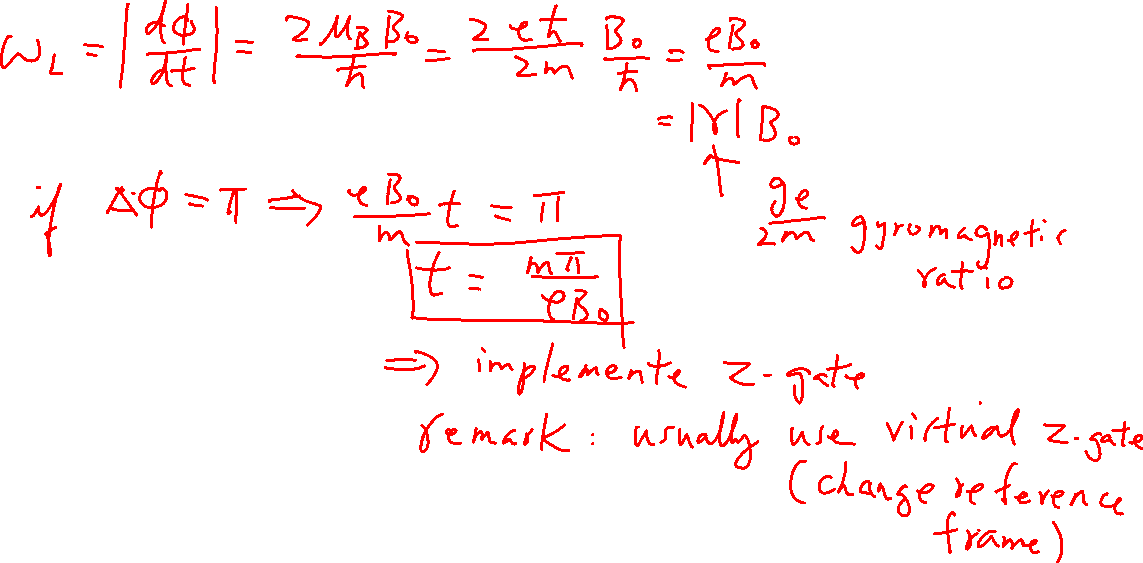 ω_L = |dϕ/dt| = 2 μ_B B₀/ħ = 2 eħ/2m B₀/ħ = eB₀/m
= |γ| B₀
↑ ge/2m gyromagnetic
ratio
if Δϕ = π ⇒ eB₀/m t = π
t = mπ/eB₀
⇒ implemente z-gate
remark : usually use virtual z-gate
(change reference
frame)